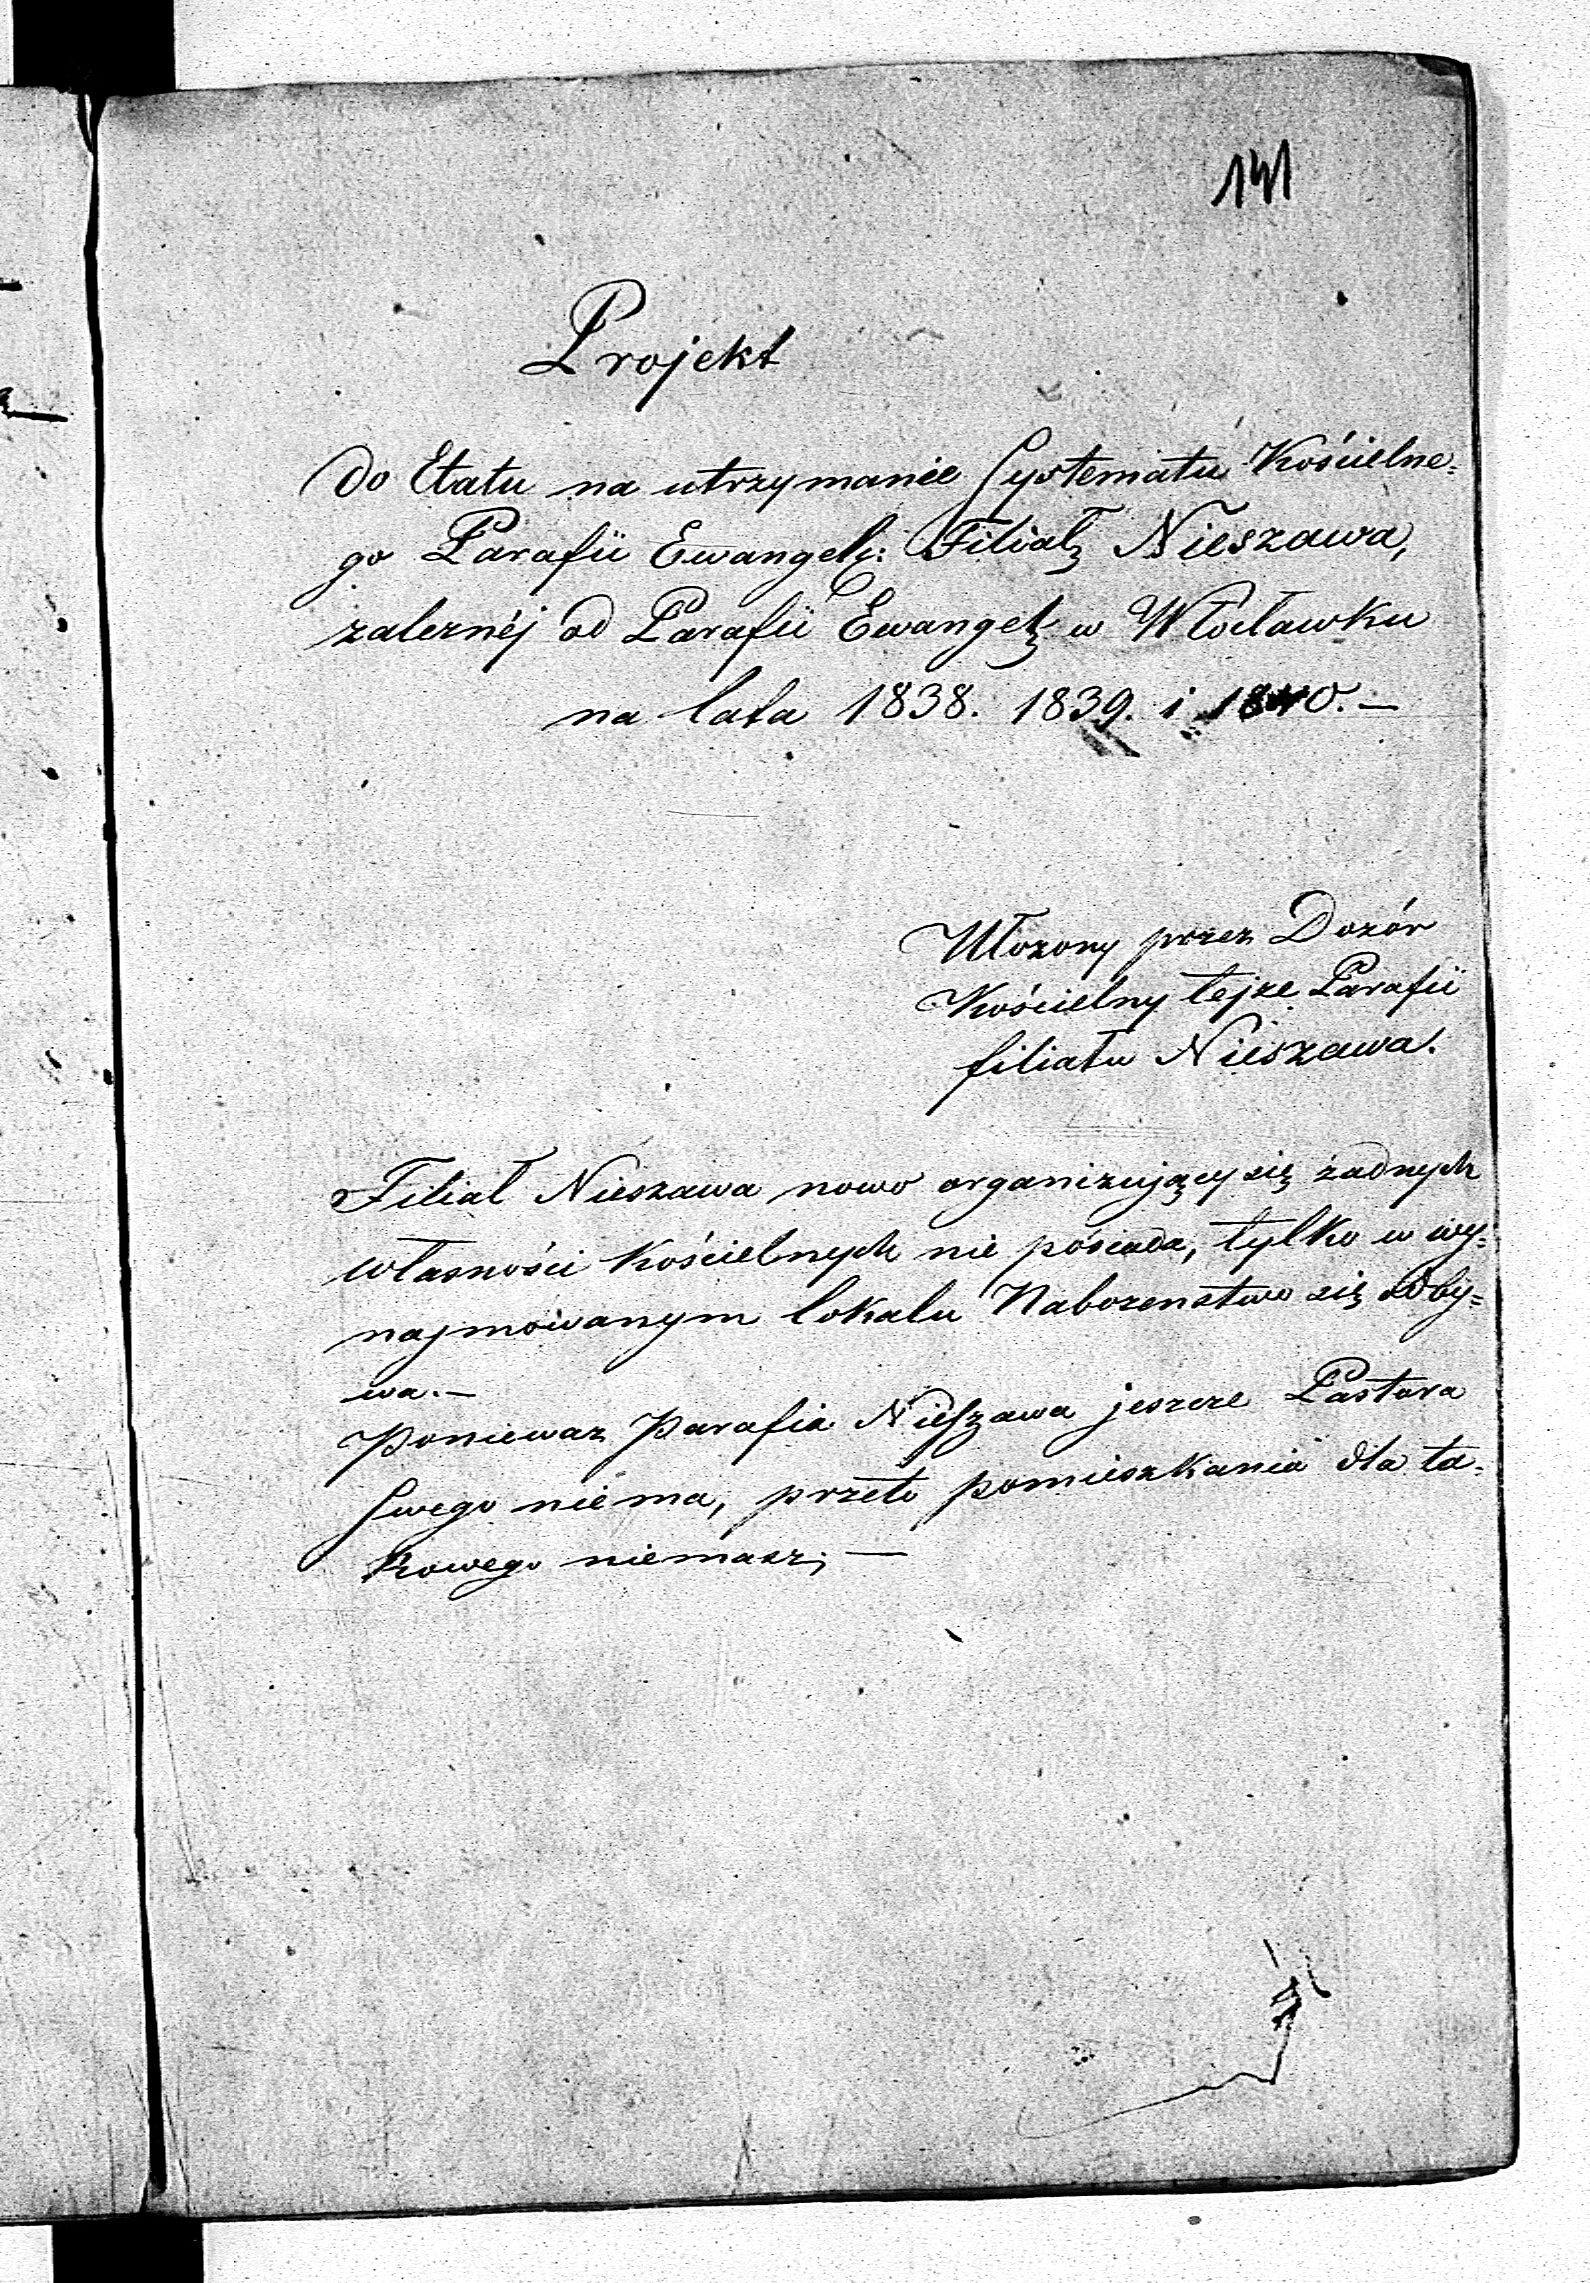 141
Projekt
do Etatu na utrzymanie Systematu Kościelne=
go Parafii Ewangel: Filiał Nieszawa,
zależnéj od Parafii Ewangel: w Włocławku
na lata 1838. 1839. i 1840. —
Ułożony przez Dozór
Kościelny tejże Parafii
filiału Nieszawa.
Filiał Nieszawa nowo organizujący się żadnych
własności Kościelnych nie posiada, tylko w wy=
najmowanym lokalu Nabożenstwo się odby=
wa. —
Ponieważ Parafia Nieszawa jeszcze Pastora
swego nie ma, przeto pomieszkania dla ta=
kowego niemasz; —